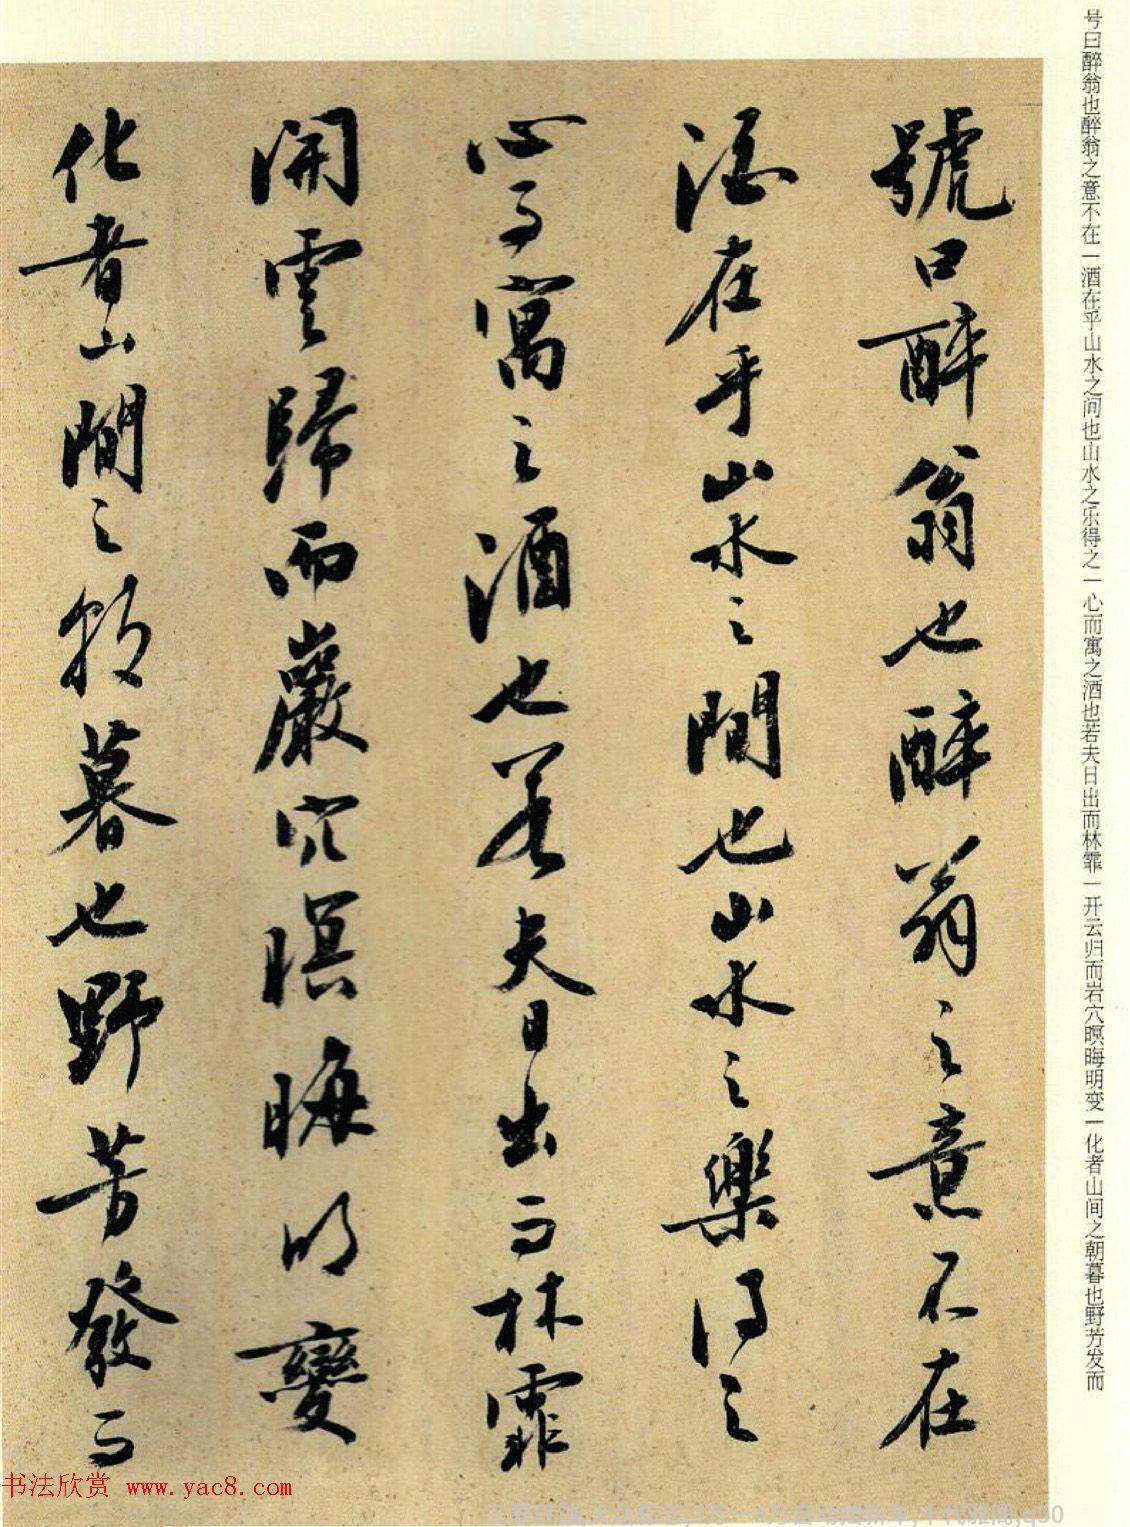 号曰醉翁也醉翁之意不在一酒在乎山水之间也山水之乐得之一心而寓之酒也若夫日出而林霏一开云归而岩穴暝晦明变一化者山间之朝暮也野芳发而
號曰醉翁也醉翁之意不在
酒在乎山水之間也山水之樂得之
心而寓之酒也若夫日出而林霏
開雲歸而巖穴暝晦明變
化者山間之朝暮也野芳發而
书法欣赏 www.yac8.com